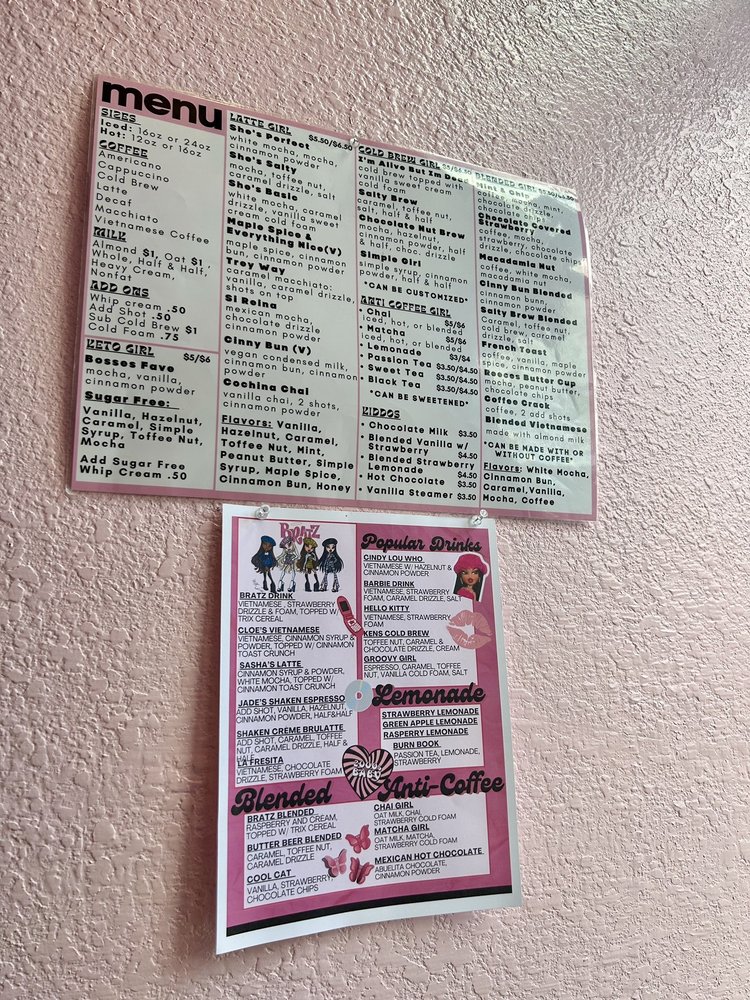 menu
SIZES
Iced: 16oz or 24oz
Hot: 12oz or 16oz
COFFEE
Americano
Cappuccino
Cold Brew
Latte
Decaf
Macchiato
Vietnamese Coffee
MILK
Almond $1, Oat $1,
Whole, Half & Half,
Heavy Cream,
Nonfat
ADD ONS
Whip cream .50
Add Shot .50
Sub Cold Brew $1
Cold Foam .75
KETO GIRL $5/$6
Bosses Fave
mocha, vanilla,
cinnamon powder
Sugar Free:
Vanilla, Hazelnut,
Caramel, Simple
Syrup, Toffee Nut,
Mocha
Add Sugar Free
Whip Cream .50
LATTE GIRL $5.50/$6.50
She's Perfect
white mocha, mocha,
cinnamon powder
She's Salty
mocha, toffee nut,
caramel drizzle, salt
She's Basic
white mocha, caramel
drizzle, vanilla sweet
cream cold foam
Maple Spice &
Everything Nice(V)
maple spice, cinnamon
bun, cinnamon powder
Trey Way
caramel macchiato:
vanilla, caramel drizzle,
shots on top
Si Reina
mexican mocha,
chocolate drizzle
cinnamon powder
Cinny Bun (V)
vegan condensed milk,
cinnamon bun, cinnamon
powder
Cochina Chai
vanilla chai, 2 shots,
cinnamon powder
Flavors: Vanilla,
Hazelnut, Caramel,
Toffee Nut, Mint,
Peanut Butter, Simple
Syrup, Maple Spice,
Cinnamon Bun, Honey
COLD BREW GIRL $5/$6.50
I'm Alive But Im Dead
cold brew topped with
vanilla sweet cream
cold foam
Salty Brew
caramel, toffee nut,
salt, half & half
Chocolate Nut Brew
mocha, hazelnut,
cinnamon powder, half
& half, choc. drizzle
Simple Girl
simple syrup, cinnamon
powder, half & half
*CAN BE CUSTOMIZED*
ANTI COFFEE GIRL
• Chai $5/$6
iced, hot, or blended
• Matcha $5/$6
iced, hot, or blended
• Lemonade $3/$4
• Passion Tea $3.50/$4.50
• Sweet Tea $3.50/$4.50
• Black Tea $3.50/$4.50
*CAN BE SWEETENED*
KIDDOS
• Chocolate Milk $3.50
• Blended Vanilla w/
Strawberry $4.50
• Blended Strawberry
Lemonade $4.50
• Hot Chocolate $3.50
• Vanilla Steamer $3.50
BLENDED GIRL
Mint & Chip
coffee, mocha, mint,
chocolate drizzle,
chocolate chips
Chocolate Covered
Strawberry
coffee, mocha,
strawberry, chocolate
drizzle, chocolate chips
Macadamia Nut
coffee, white mocha,
macadamia nut
Cinny Bun Blended
cinnamon bunn,
cinnamon powder
Salty Brew Blended
Caramel, toffee nut,
cold brew, caramel
drizzle, salt
French Toast
coffee, vanilla, maple
spice, cinnamon powder
Reeces Butter Cup
mocha, peanut butter,
chocolate chips
Coffee Crack
coffee, 2 add shots
Blended Vietnamese
made with almond milk
*CAN BE MADE WITH OR
WITHOUT COFFEE*
Flavors: White Mocha,
Cinnamon Bun,
Caramel, Vanilla,
Mocha, Coffee
BRATZ
BRATZ DRINK
VIETNAMESE, STRAWBERRY
DRIZZLE & FOAM, TOPPED W/
TRIX CEREAL
CLOE'S VIETNAMESE
VIETNAMESE, CINNAMON SYRUP &
POWDER, TOPPED W/ CINNAMON
TOAST CRUNCH
SASHA'S LATTE
CINNAMON SYRUP & POWDER,
WHITE MOCHA, TOPPED W/
CINNAMON TOAST CRUNCH
JADE'S SHAKEN ESPRESSO
ADD SHOT, VANILLA, HAZELNUT,
CINNAMON POWDER, HALF&HALF
SHAKEN CREME BRULATTE
ADD SHOT, CARAMEL, TOFFEE
NUT, CARAMEL DRIZZLE, HALF &
HALF
LA FRESITA
VIETNAMESE, CHOCOLATE
DRIZZLE, STRAWBERRY FOAM
Popular Drinks
CINDY LOU WHO
VIETNAMESE W/ HAZELNUT &
CINNAMON POWDER
BARBIE DRINK
VIETNAMESE, STRAWBERRY
FOAM, CARAMEL DRIZZLE, SALT
HELLO KITTY
VIETNAMESE, STRAWBERRY
FOAM
KENS COLD BREW
TOFFEE NUT, CARAMEL &
CHOCOLATE DRIZZLE, CREAM
GROOVY GIRL
ESPRESSO, CARAMEL, TOFFEE
NUT, VANILLA COLD FOAM, SALT
Lemonade
STRAWBERRY LEMONADE
GREEN APPLE LEMONADE
RASPERRY LEMONADE
BURN BOOK
PASSION TEA, LEMONADE,
STRAWBERRY
Blended
BRATZ BLENDED
RASPBERRY AND CREAM,
TOPPED W/ TRIX CEREAL
BUTTER BEER BLENDED
CARAMEL, TOFFEE NUT,
CARAMEL DRIZZLE
COOL CAT
VANILLA, STRAWBERRY,
CHOCOLATE CHIPS
Anti-Coffee
CHAI GIRL
OAT MILK, CHAI,
STRAWBERRY COLD FOAM
MATCHA GIRL
OAT MILK, MATCHA,
STRAWBERRY COLD FOAM
MEXICAN HOT CHOCOLATE
ABUELITA CHOCOLATE,
CINNAMON POWDER